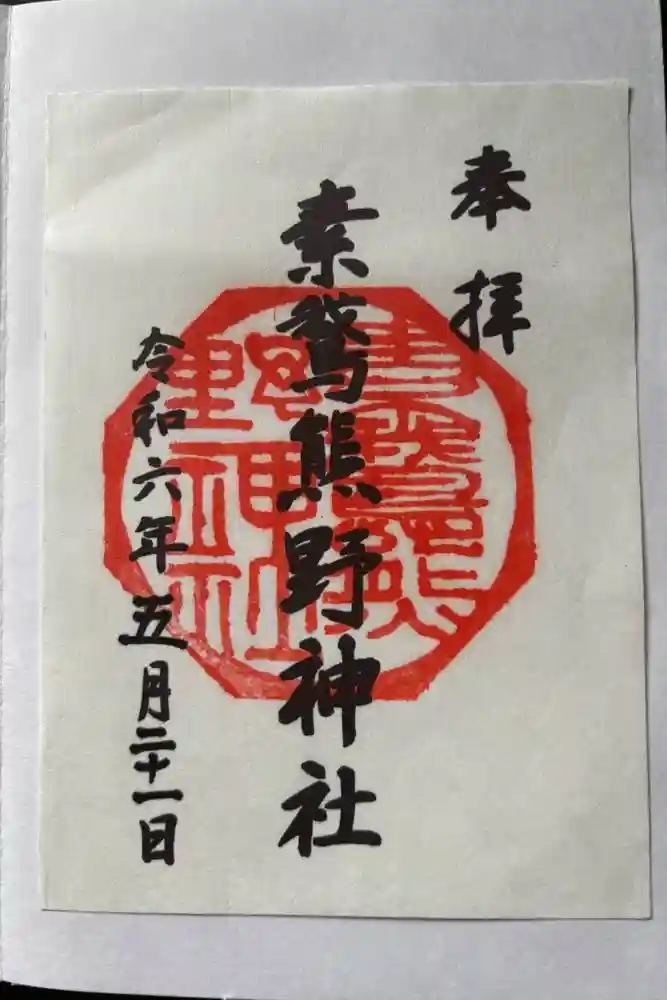 奉拝
素鵞熊野神社
令和六年五月二十一日